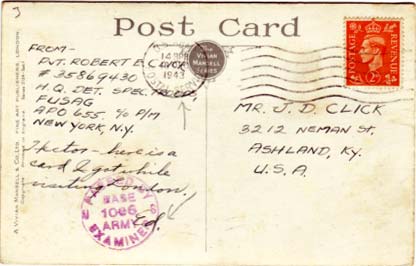 3
Post Card
FROM-
PVT. ROBERT E. CLICK
# 35869430
H.Q. DET. SPEC. TROOPS
FUSAG
APO 655. % P/M
NEW YORK, N.Y.
Hector - here is a
card I got while
visiting London.
Ed.
MR. J. D. CLICK
3212 NEMAN ST,
ASHLAND, KY.
U.S.A.
THE
VIVIAN
MANSELL
SERIES
1943
POSTAGE
REVENUE
PASSED BY
BASE
1086
ARMY
EXAMINER
A VIVIAN MANSELL & CO. LTD. FINE ART PUBLISHERS, LONDON.
Copyright Printed in England.